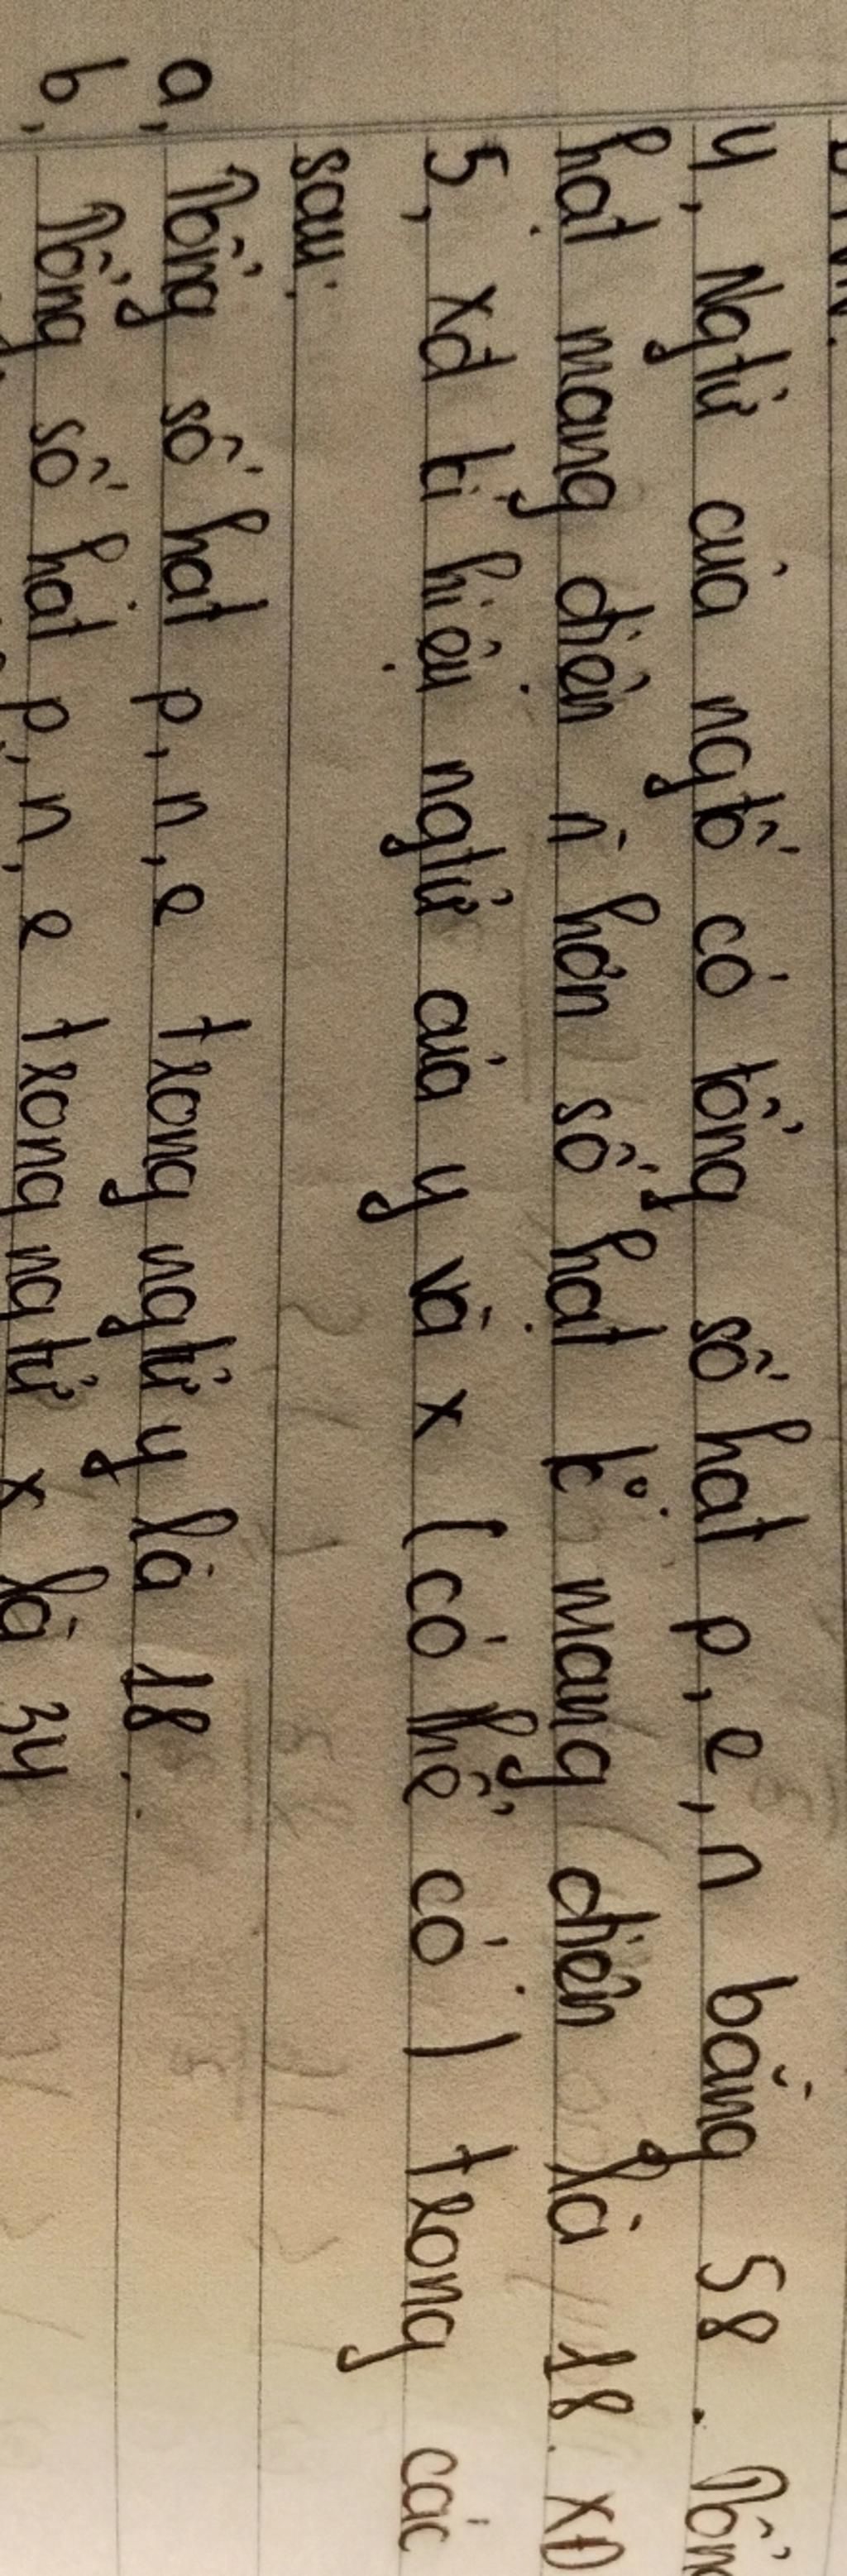 4, Ngtử của ngtố có tổng số hạt p, e, n bằng 58. Tổng
hạt mang điện n` hơn số hạt k° mang điện là 18. XĐ
5, xđ kí hiệu ngtử của y và x (có thể có) trong các
sau:
a, Tổng số hạt p, n, e trong ngtử y là 18.
b, Tổng số hạt p, n, e trong ngtử x là 34